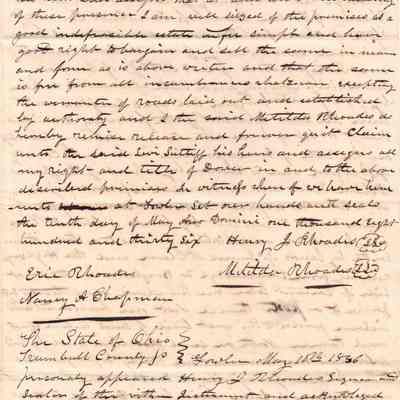 of these presence I am well sized of the premises as a
good indefeasible estate in fee simple and have
good right to bargain and sell the same in manner
and form as is above writen and that the same
is free from all incumbrance whatsoever excepting
the of roads laid out and established
by authority and I the said Matilda Rhoades do
hereby remise release and forever quit Claim
unto the said Levi Sutliff his heirs and assigns all
my right and title of Dower in and to the above
described premises In witness whereof we have here
unto at Fowler Set our hands and seals
the tenth day of May Ano Domini one thousand eight
hundred and thirty six Henry J Rhoades
Eric Rhoades Matilda Rhoades
Nancy A Chapman
The State of Ohio
Trumbull County Ss Fowler May 16th 1836
personally appeared Henry J Rhoades Signer and
Sealor of the within Instrument and acknowledged